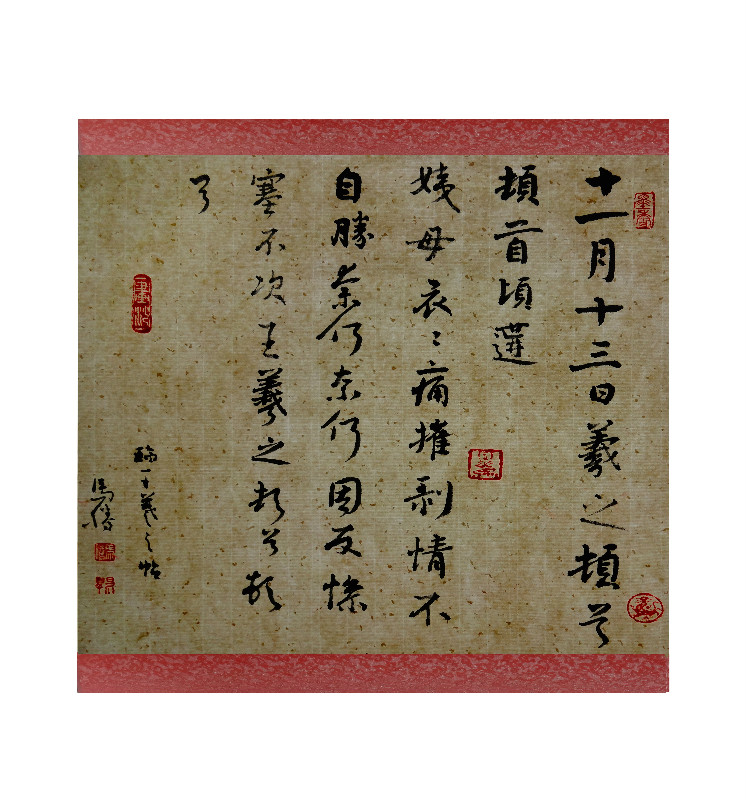 十一月十三日羲之頓首
頓首頃遘
姨母哀〻痛摧剝情不
自勝奈何奈何因反慘
塞不次王羲之頓首頓
首
臨王羲之帖
馬